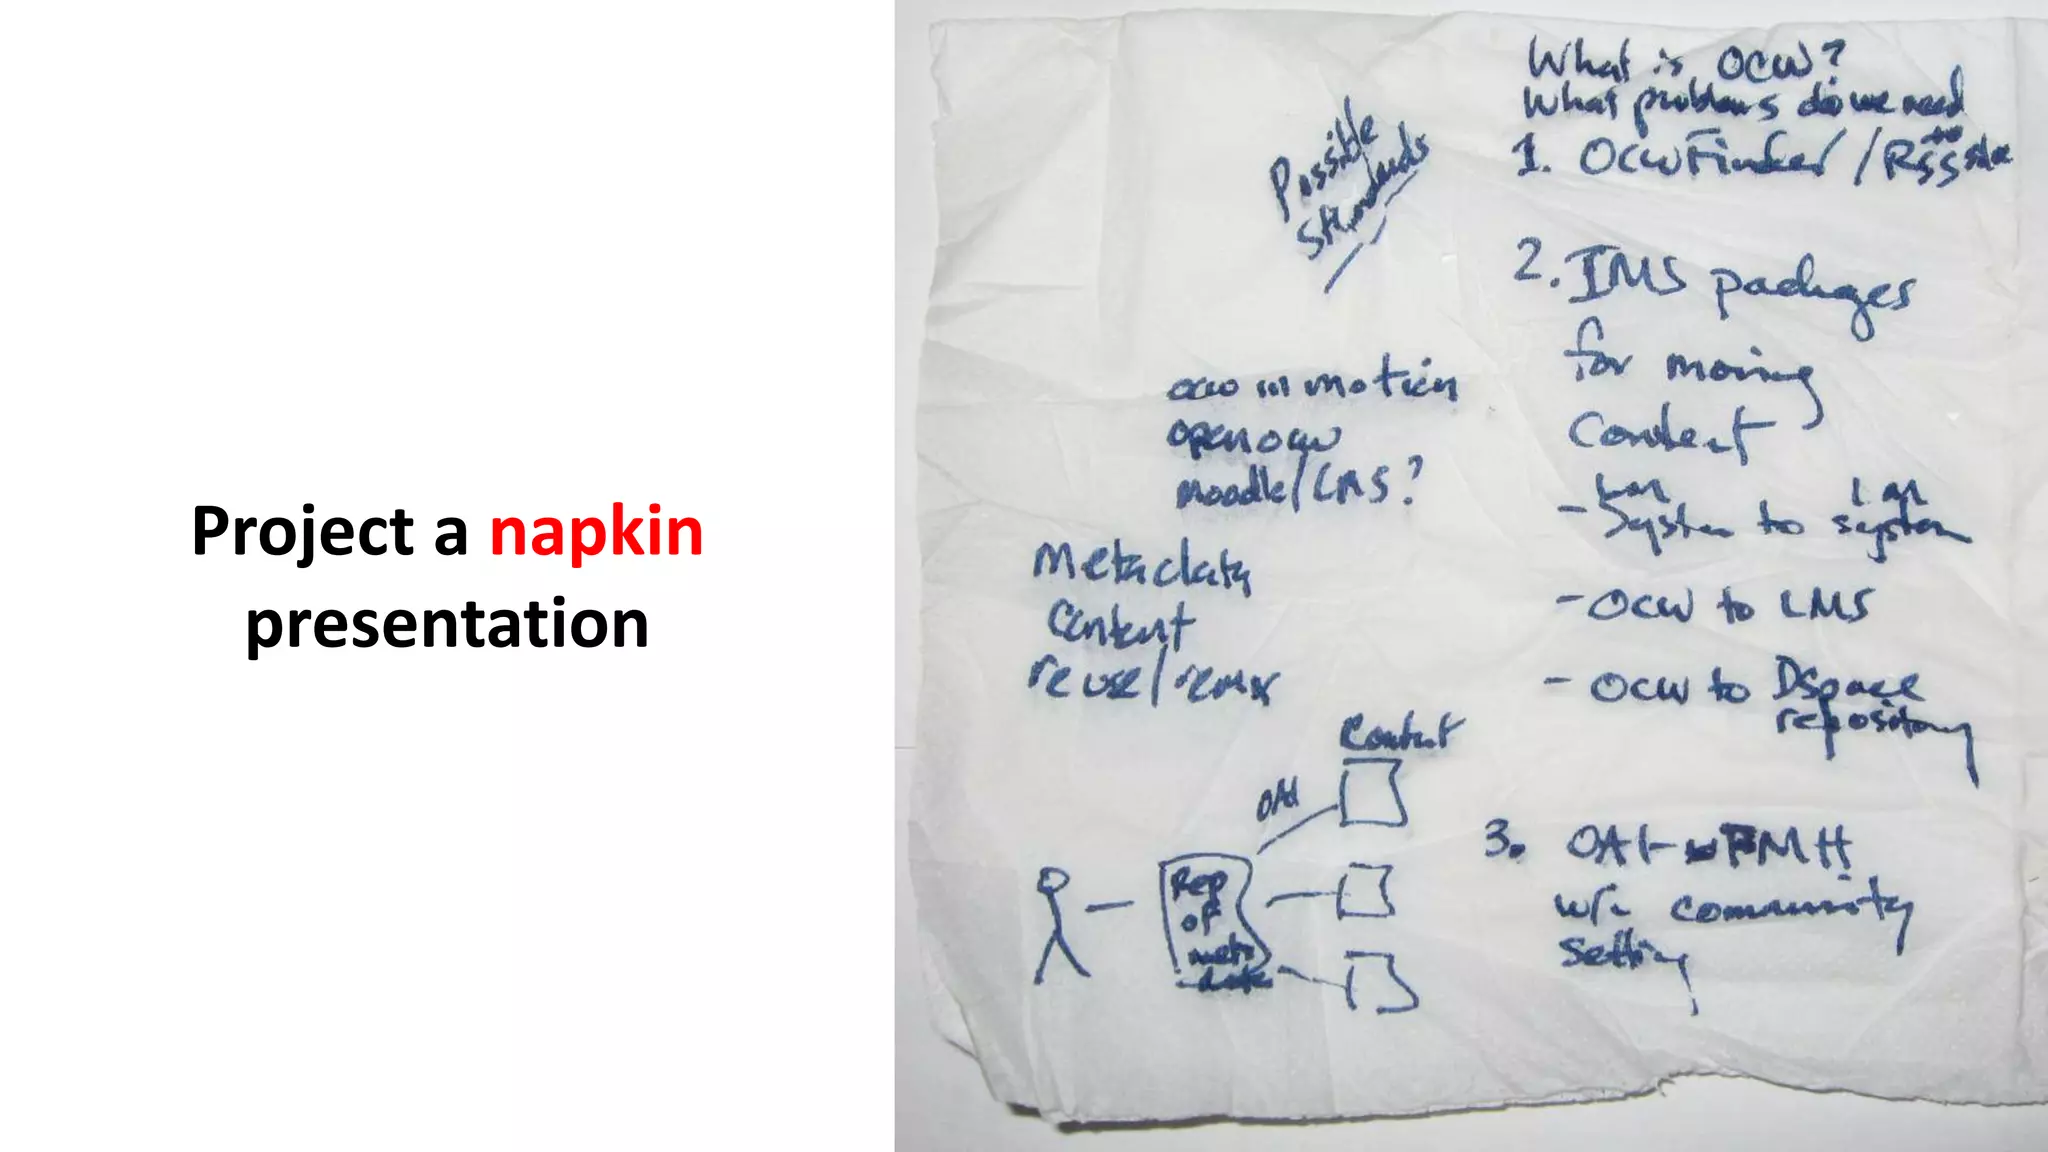 Project a napkin
presentation
What is OCW?
What problems do we need
to solve
1. OCW Finder/RSS
Possible
Standards
2. IMS packages
for moving
Content
- System to system
- OCW to LMS
- OCW to DSpace
repository
3. OAI-PMH
community
setting
ocw in motion
open ocw
moodle/LMS?
Metadata
Content
reuse/remix
Content
OAI
Rep
of
meta
data